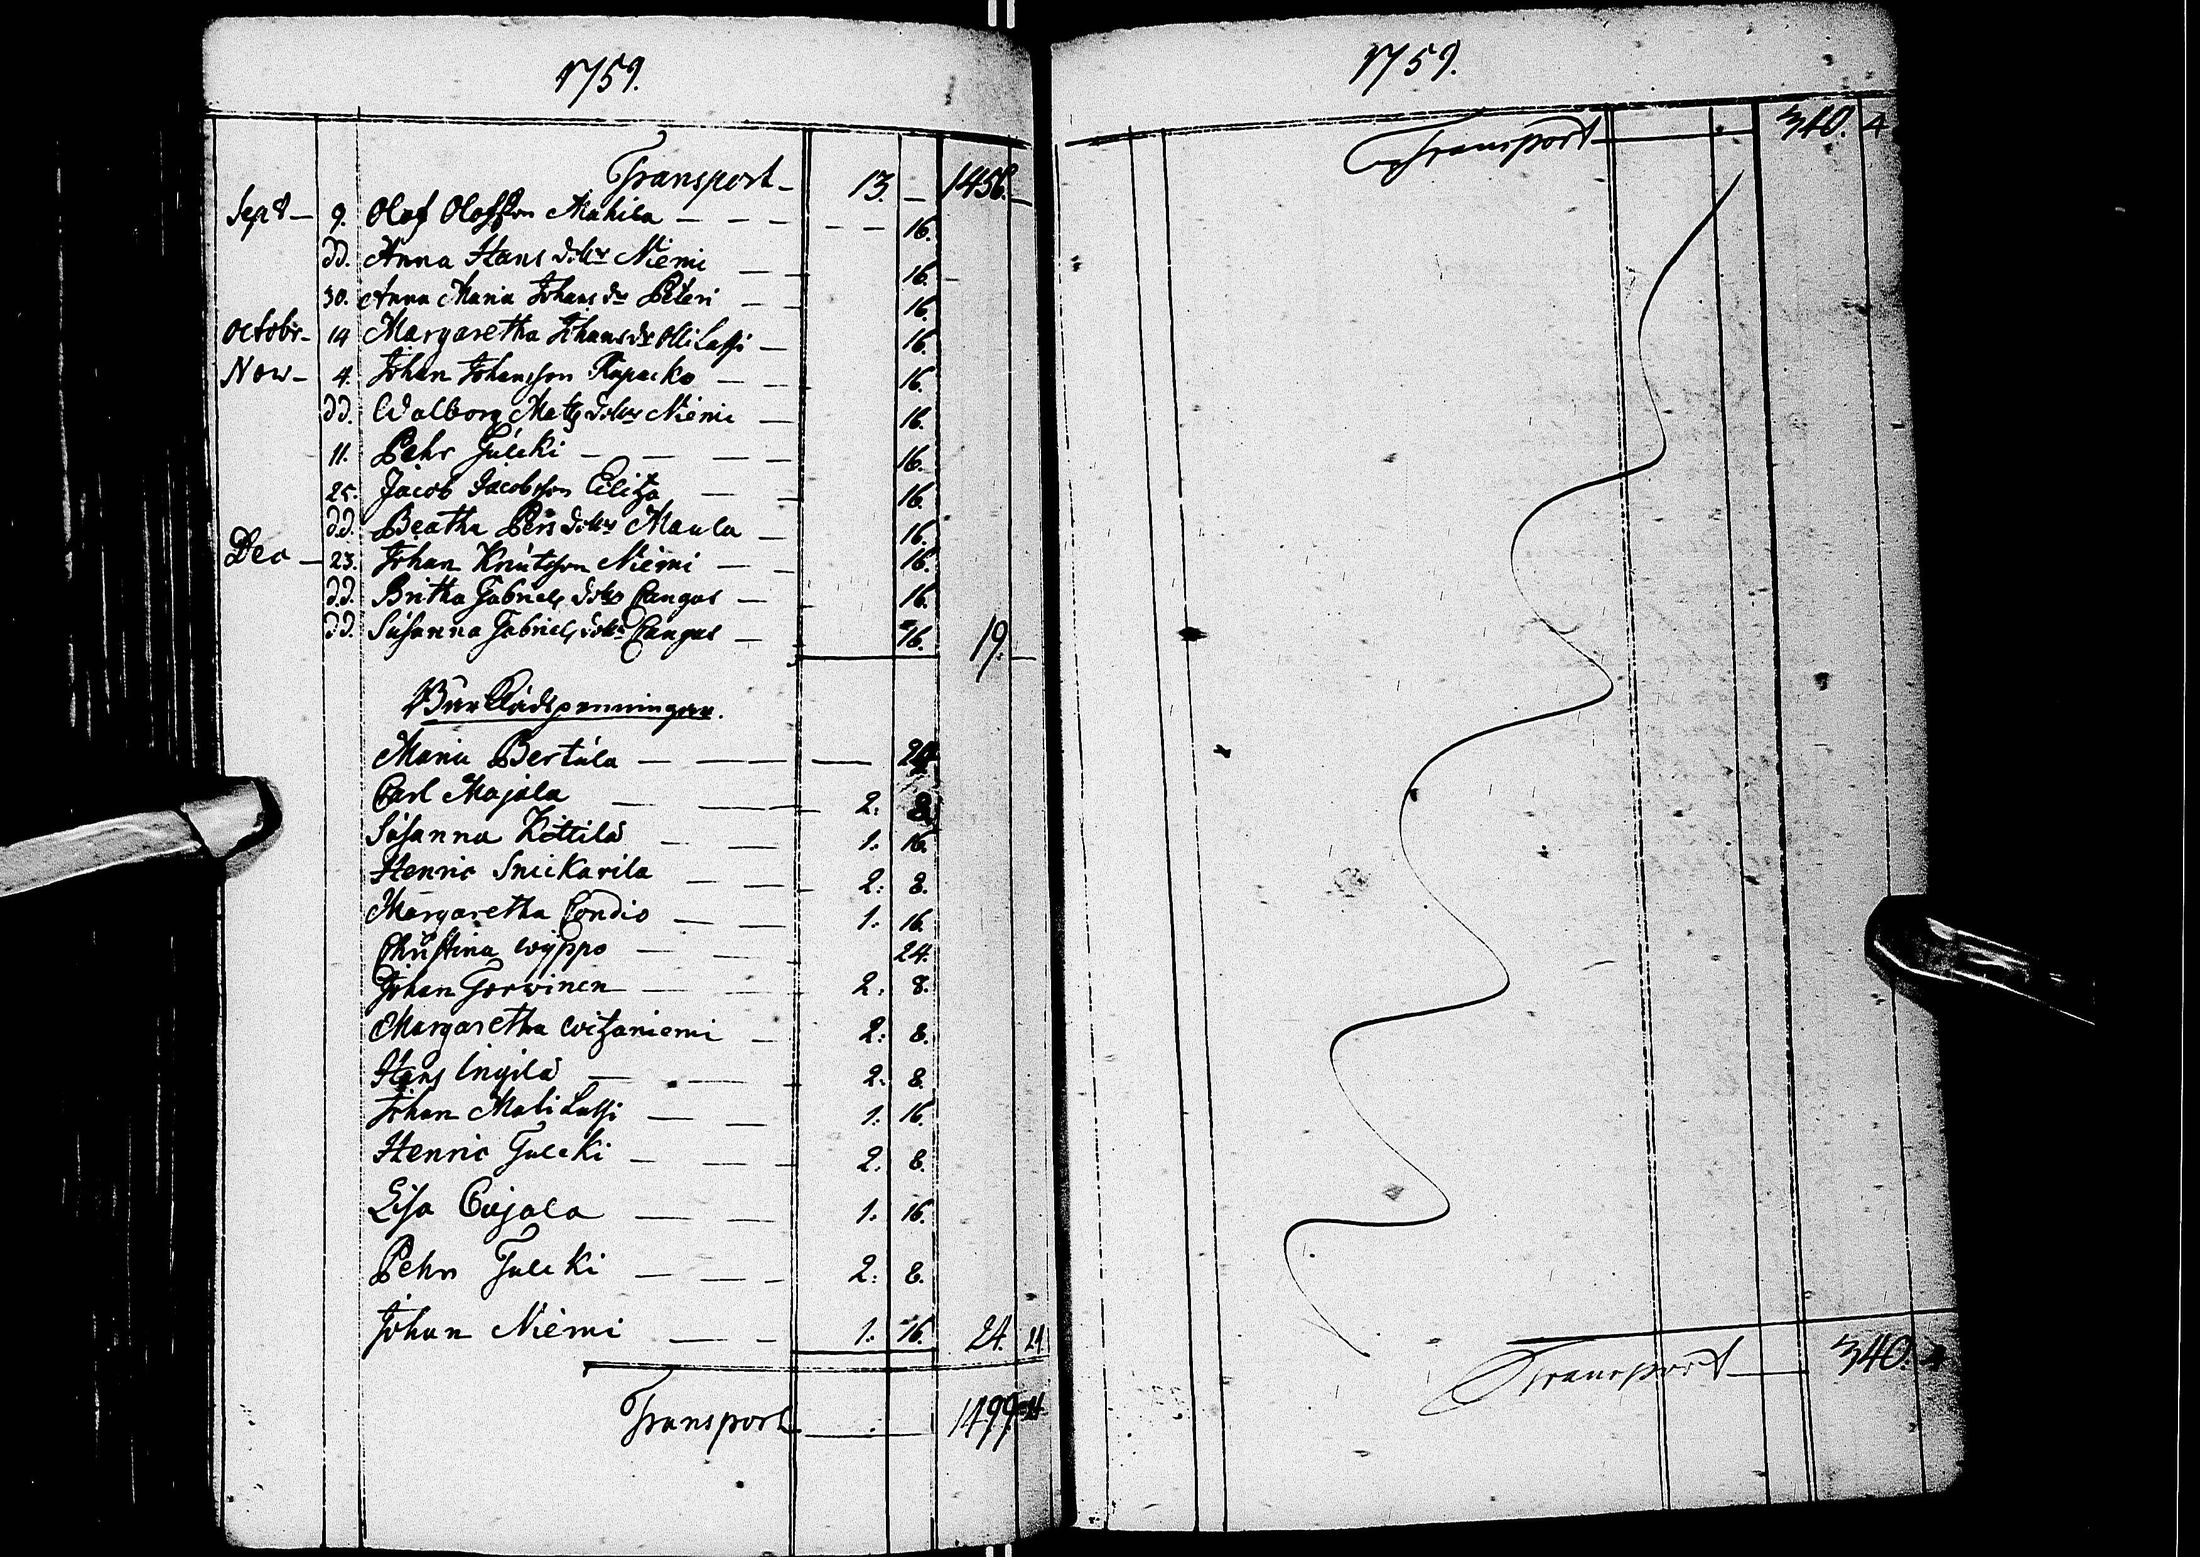 1759.
Transport 13. — 1456. —
Sept — 9. Olof Olofsson Mahila — — — 16.
dd. Anna Hans dottr Niemi — — 16.
30. Anna Maria Johans dr Peteri — 16.
Octobr — 14 Margaretha Johansdr Olli Lassi — 16.
Nov — 4. Johan Johansson — — 16.
dd. Walborg Mats dottr Niemi — 16.
11. Pehr Juleki — — — — 16.
25. Jacob Jacobsson — — 16.
dd. Beatha Pers dottr Maula — 16.
Dec — 23. Johan Knutsson Niemi — — 16.
dd. Britha Gabriels dottr Cangas — 16.
dd. Susanna Gabriels dottr Cangas — 16. 19. —
Bårklädspenningar.
Maria Bertula — — — — 24
Carl Majala — — 2: 8
Susanna Köttilä — — 1: 16.
Henric Snickarila — — 2: 8.
Margaretha Condio — — 1: 16.
Christina Wyppo — — 24.
Johan Gorwinen — — 2: 8.
Margaretha Witzaniemi — 2: 8.
Hans Ingilä — — 2: 8.
Johan Mali Lassi — — 1: 16.
Henric Juleki — — 2: 8.
Lisa Cujala — — 1: 16.
Pehr Juleki — — — 2: 8.
Johan Niemi — — 1: 16. 24. 24
Transport 1499: 24.
1759.
Transport — 340. 4
Transport — 340. 4